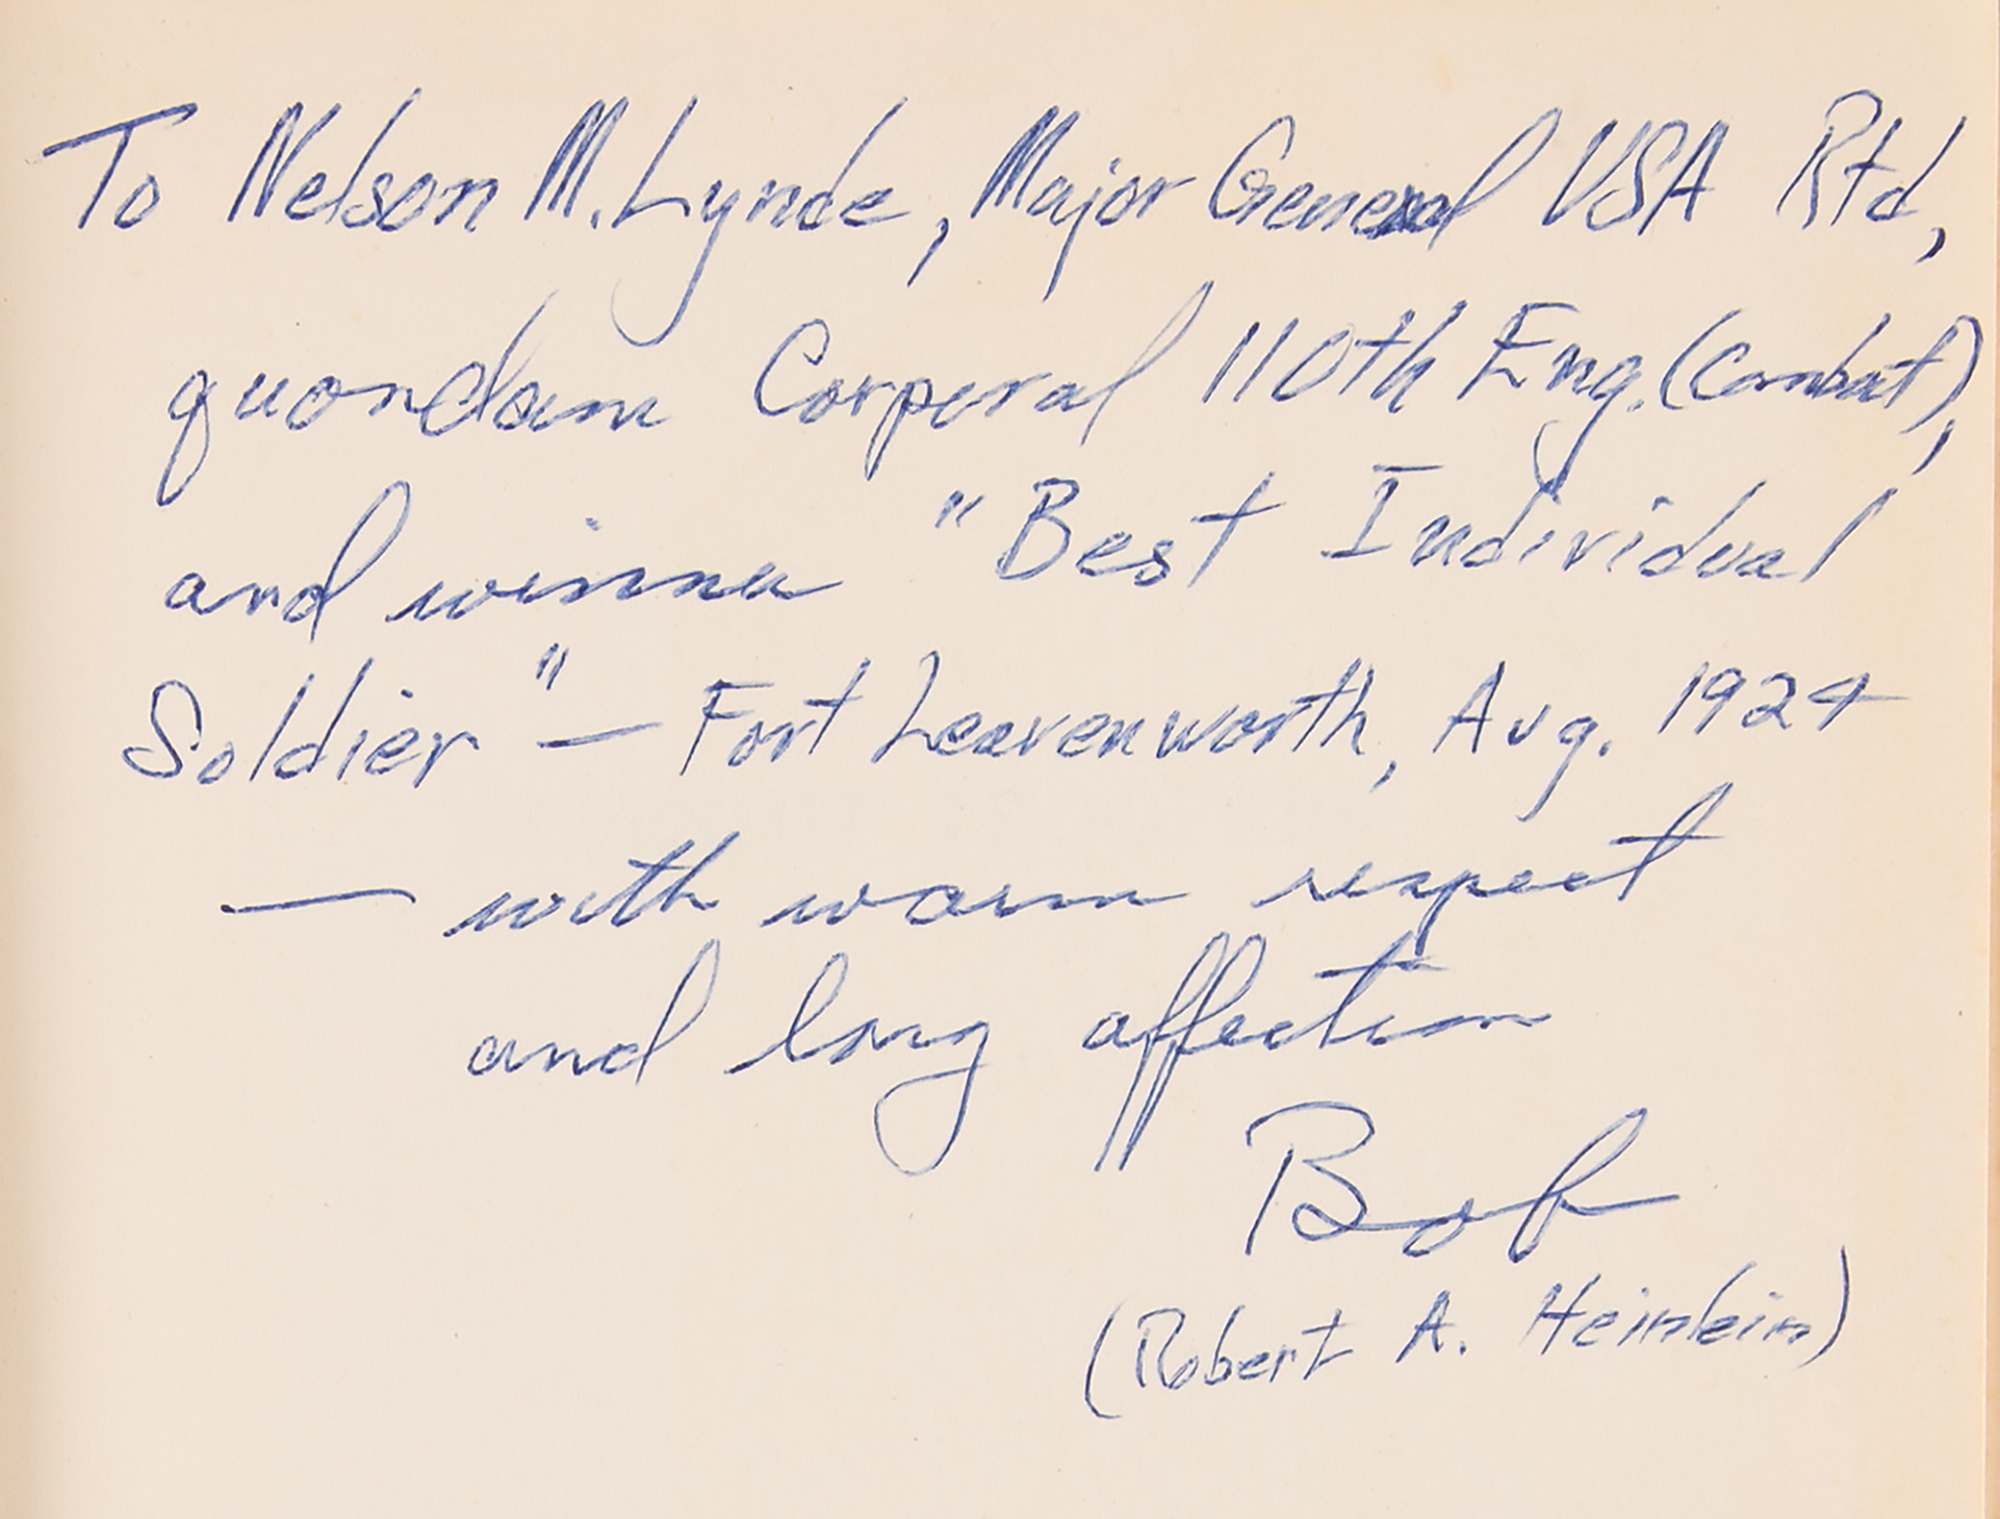 To Nelson M. Lynde, Major General USA Rtd,
quondam Corporal 110th Eng. (Combat),
and winner "Best Individual
Soldier" — Fort Leavenworth, Aug. 1924
— with warm respect
and long affection
Bob
(Robert A. Heinlein)